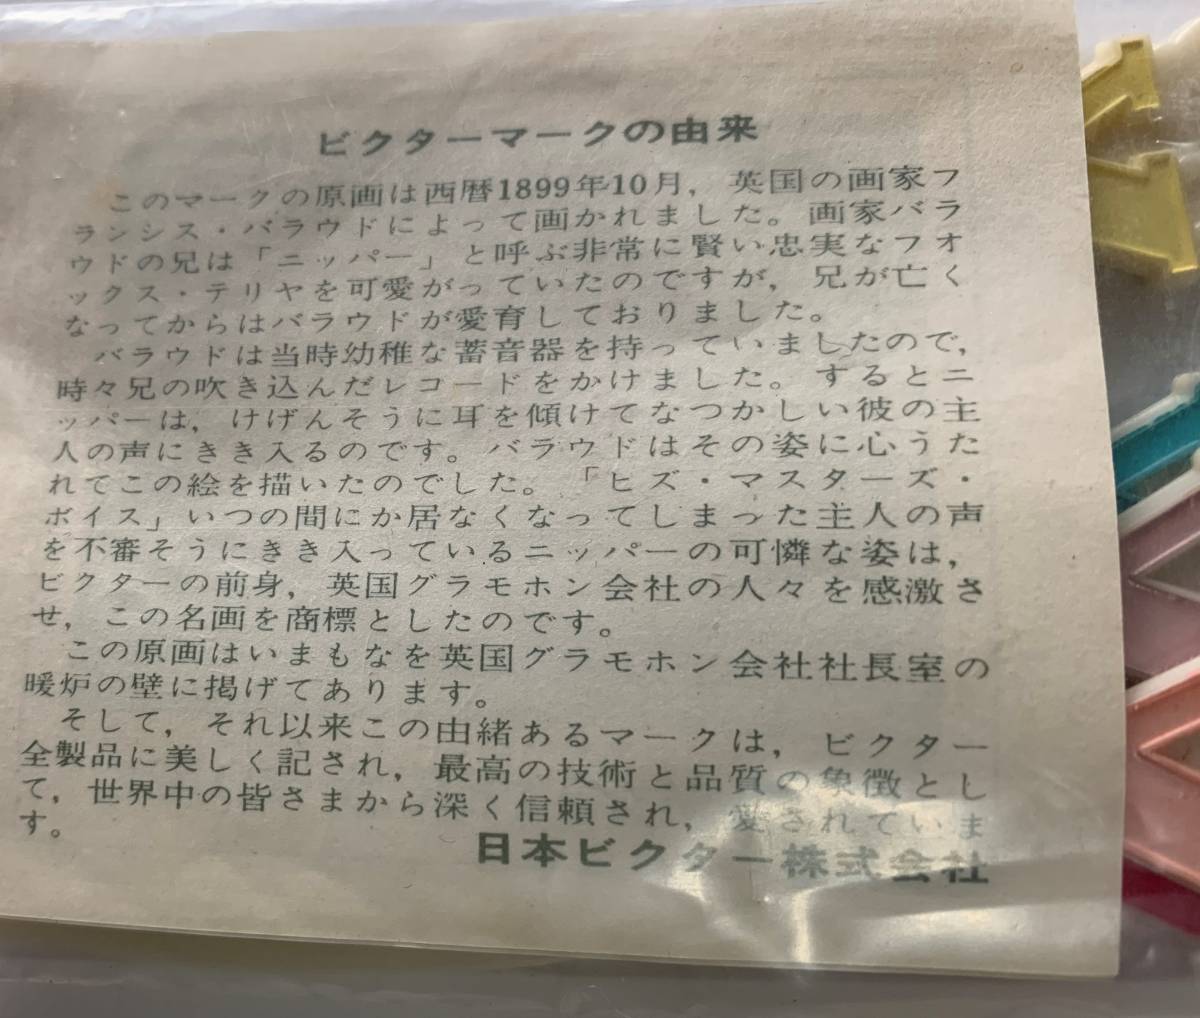 ビクターマークの由来
このマークの原画は西暦1899年10月，英国の画家フ
ランシス・バラウドによって画かれました。画家バラ
ウドの兄は「ニッパー」と呼ぶ非常に賢い忠実なフオ
ックス・テリヤを可愛がっていたのですが，兄が亡く
なってからはバラウドが愛育しておりました。
バラウドは当時幼稚な蓄音器を持っていましたので，
時々兄の吹き込んだレコードをかけました。するとニ
ッパーは，けげんそうに耳を傾けてなつかしい彼の主
人の声にきき入るのです。バラウドはその姿に心うた
れてこの絵を描いたのでした。「ヒズ・マスターズ・
ボイス」いつの間にか居なくなってしまった主人の声
を不審そうにきき入っているニッパーの可憐な姿は，
ビクターの前身，英国グラモホン会社の人々を感激さ
せ，この名画を商標としたのです。
この原画はいまもなを英国グラモホン会社社長室の
暖炉の壁に掲げてあります。
そして，それ以来この由緒あるマークは，ビクター
全製品に美しく記され，最高の技術と品質の象徴とし
て，世界中の皆さまから深く信頼され，愛されていま
す。
日本ビクター株式会社